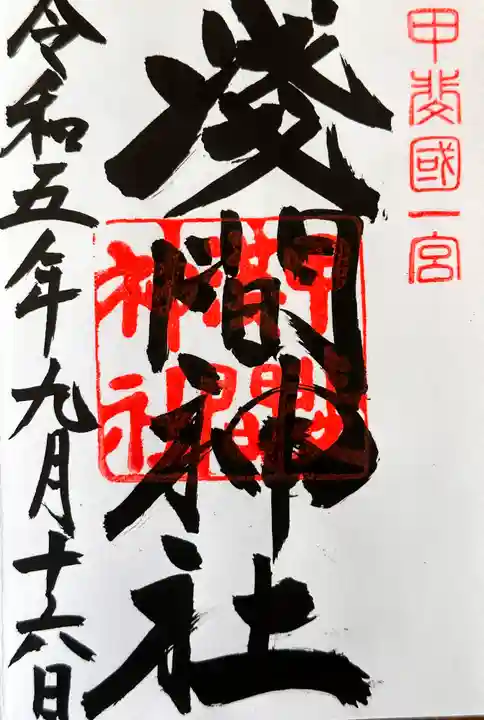 甲斐國一宮
淺間神社
甲斐國
淺間
神社
令和五年九月十六日